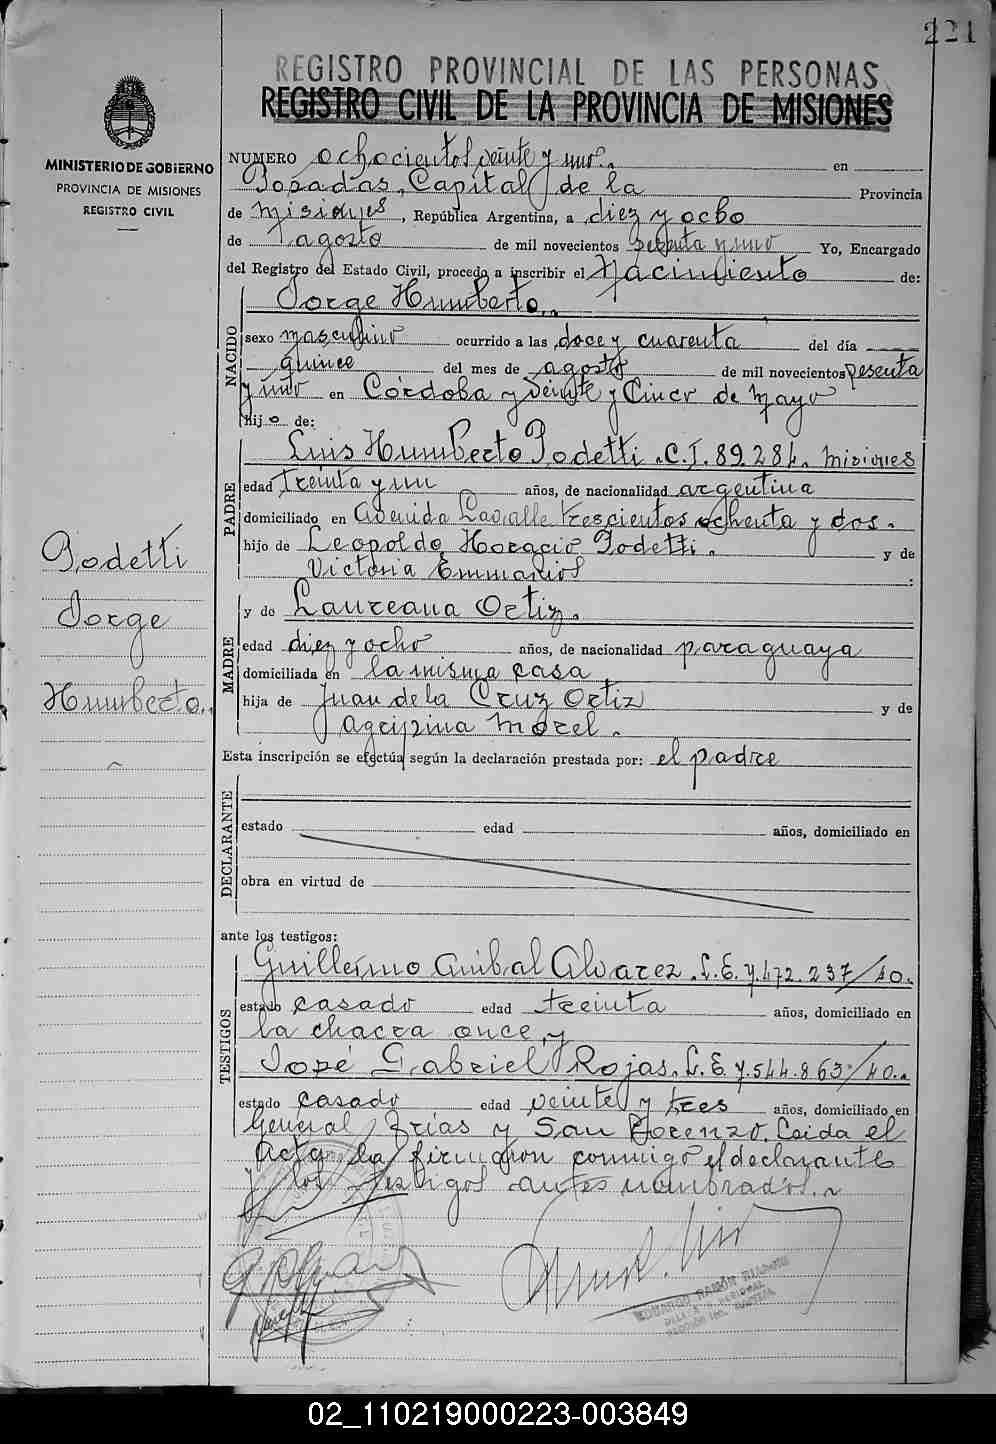 221
REGISTRO PROVINCIAL DE LAS PERSONAS
REGISTRO CIVIL DE LA PROVINCIA DE MISIONES
MINISTERIO DE GOBIERNO
PROVINCIA DE MISIONES
REGISTRO CIVIL
NUMERO ochocientos veinte y uno. en
Posadas, Capital de la Provincia
de Misiones, República Argentina, a diez y ocho
de agosto de mil novecientos sesenta y uno Yo, Encargado
del Registro del Estado Civil, procedo a inscribir el Nacimiento de:
NACIDO
Jorge Humberto.
sexo masculino ocurrido a las doce y cuarenta del día
quince del mes de agosto de mil novecientos sesenta
y uno en Córdoba y Veinte y Cinco de Mayo
hijo de:
PADRE
Luis Humberto Podetti. C.I. 89.284. Misiones
edad treinta y un años, de nacionalidad argentina
domiciliado en Avenida Lavalle trescientos ochenta y dos.
hijo de Leopoldo Horacio Podetti. y de
Victoria :
MADRE
y de Laureana Ortiz.
edad diez y ocho años, de nacionalidad paraguaya
domiciliada en la misma casa
hija de Juan de la Cruz Ortiz y de
Agripina Morel.
Podetti
Jorge
Humberto.
Esta inscripción se efectúa según la declaración prestada por: el padre
DECLARANTE
estado edad años, domiciliado en
obra en virtud de
ante los testigos:
TESTIGOS
Guillermo Anibal Alvarez. L.E. 7.472.237/40.
estado casado edad treinta años, domiciliado en
la chacra once, y
José Gabriel Rojas. L.E. 7.544.863/40.
estado casado edad veinte y tres años, domiciliado en
General Frias y San Lorenzo. Leida el
Acta la firman conmigo el declarante
y los testigos antes nombrados.
02_110219000223-003849